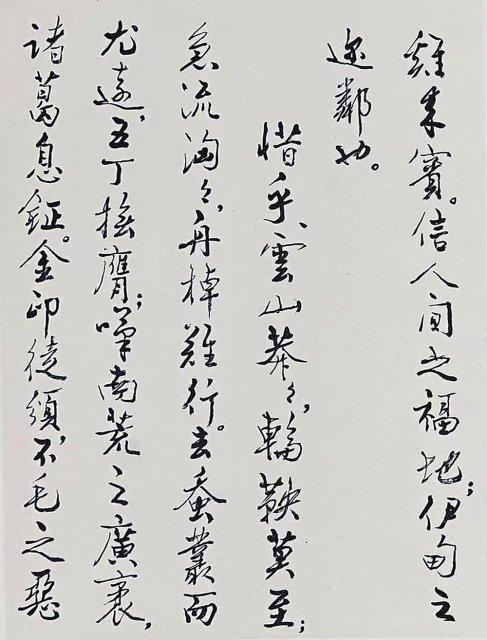 雞来賓。信人间之福地；伊甸之
迩鄰也。
惜乎、雲山莽々，輪鞅莫至；
急流洶々，舟棹難行。去蚕叢而
尤遠，五丁撫膺；嘆南荒之廣袤，
諸葛息鉦。金印徒頒，不毛之惡